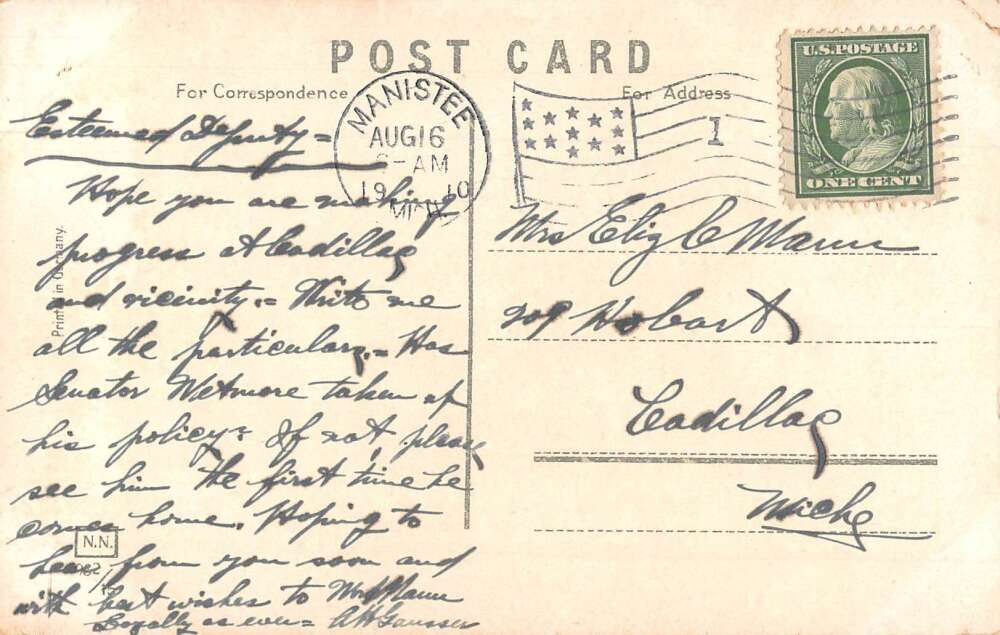 POST CARD
For Correspondence
For Address
MANISTEE
AUG 16
6-AM
1910
MICH
1
U.S. POSTAGE
ONE CENT
Esteemed Deputy =
Hope you are making
progress at Cadillac
and vicinity. = Write me
all the particulars. = Has
Senator Wetmore taken up
his policy? If not, please
see him the first time he
comes home. Hoping to
hear from you soon and
with best wishes to Mr Mann
Loyally as ever =
Mrs Eliz C Mann
209 Hobart
Cadillac
Mich
Printed in Germany.
N.N.